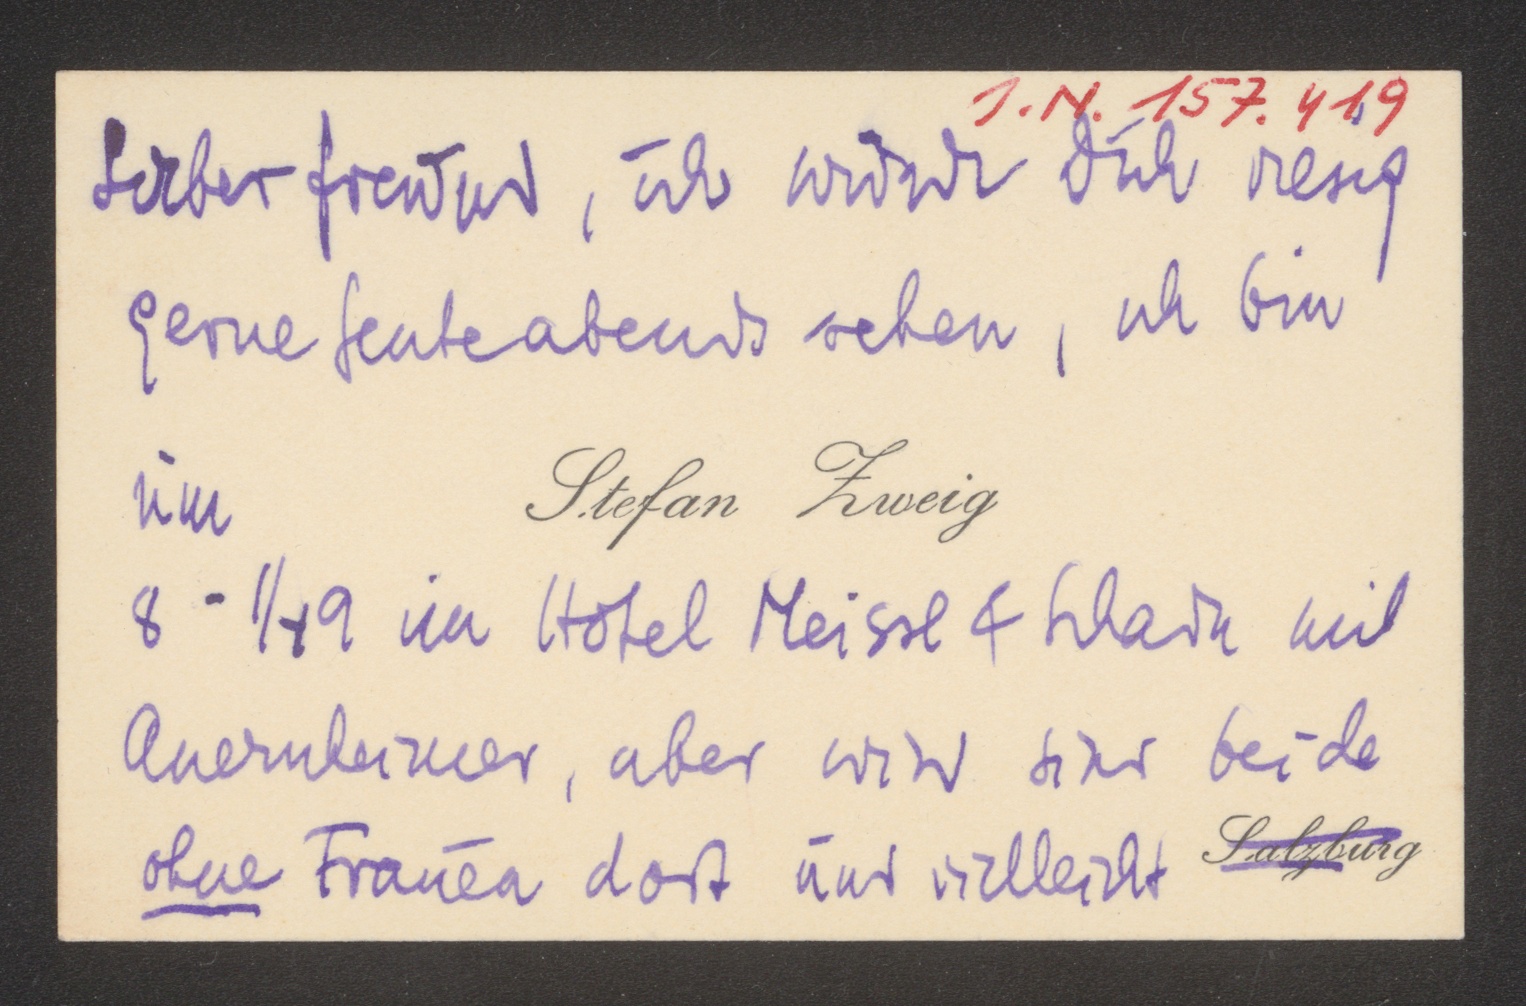 I.N. 157.419
Lieber Freund, ich würde Dich riesig
gerne heute abends sehen, ich bin
um
Stefan Zweig
8 - 1/2 9 im Hotel Meissl & Schadn mit
Auernheimer, aber wir sind beide
ohne Frauen dort und vielleicht
Salzburg